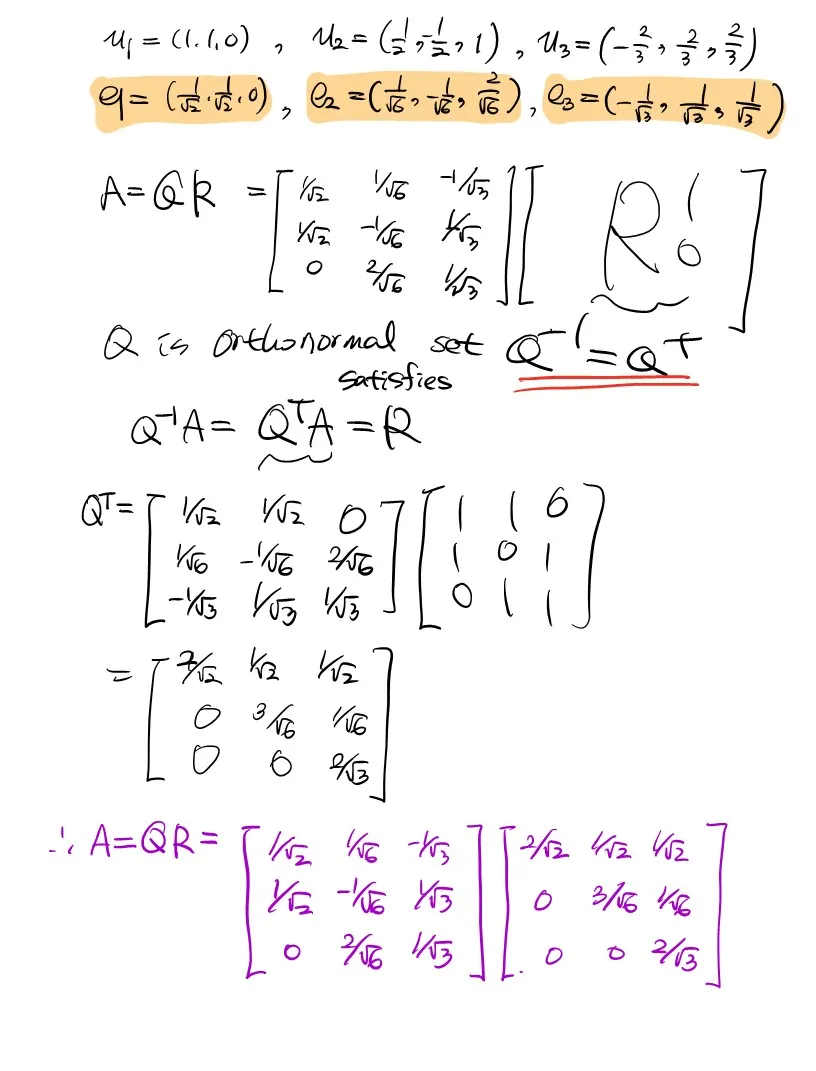 u₁ = (1, 1, 0) , u₂ = (1/2, -1/2, 1) , u₃ = (-2/3, 2/3, 2/3)
e₁ = (1/√2, 1/√2, 0) , e₂ = (1/√6, -1/√6, 2/√6) , e₃ = (-1/√3, 1/√3, 1/√3)
A = QR = [ 1/√2 1/√6 -1/√3 ] [ R! ]
1/√2 -1/√6 1/√3
0 2/√6 1/√3
Q is orthonormal set Q⁻¹ = Qᵀ
satisfies
Q⁻¹A = QᵀA = R
Qᵀ = [ 1/√2 1/√2 0 ] [ 1 1 0 ]
1/√6 -1/√6 2/√6 1 0 1
-1/√3 1/√3 1/√3 0 1 1
= [ 2/√2 1/√2 1/√2 ]
0 3/√6 1/√6
0 0 2/√3
∴ A = QR = [ 1/√2 1/√6 -1/√3 ] [ 2/√2 1/√2 1/√2 ]
1/√2 -1/√6 1/√3 0 3/√6 1/√6
0 2/√6 1/√3 0 0 2/√3